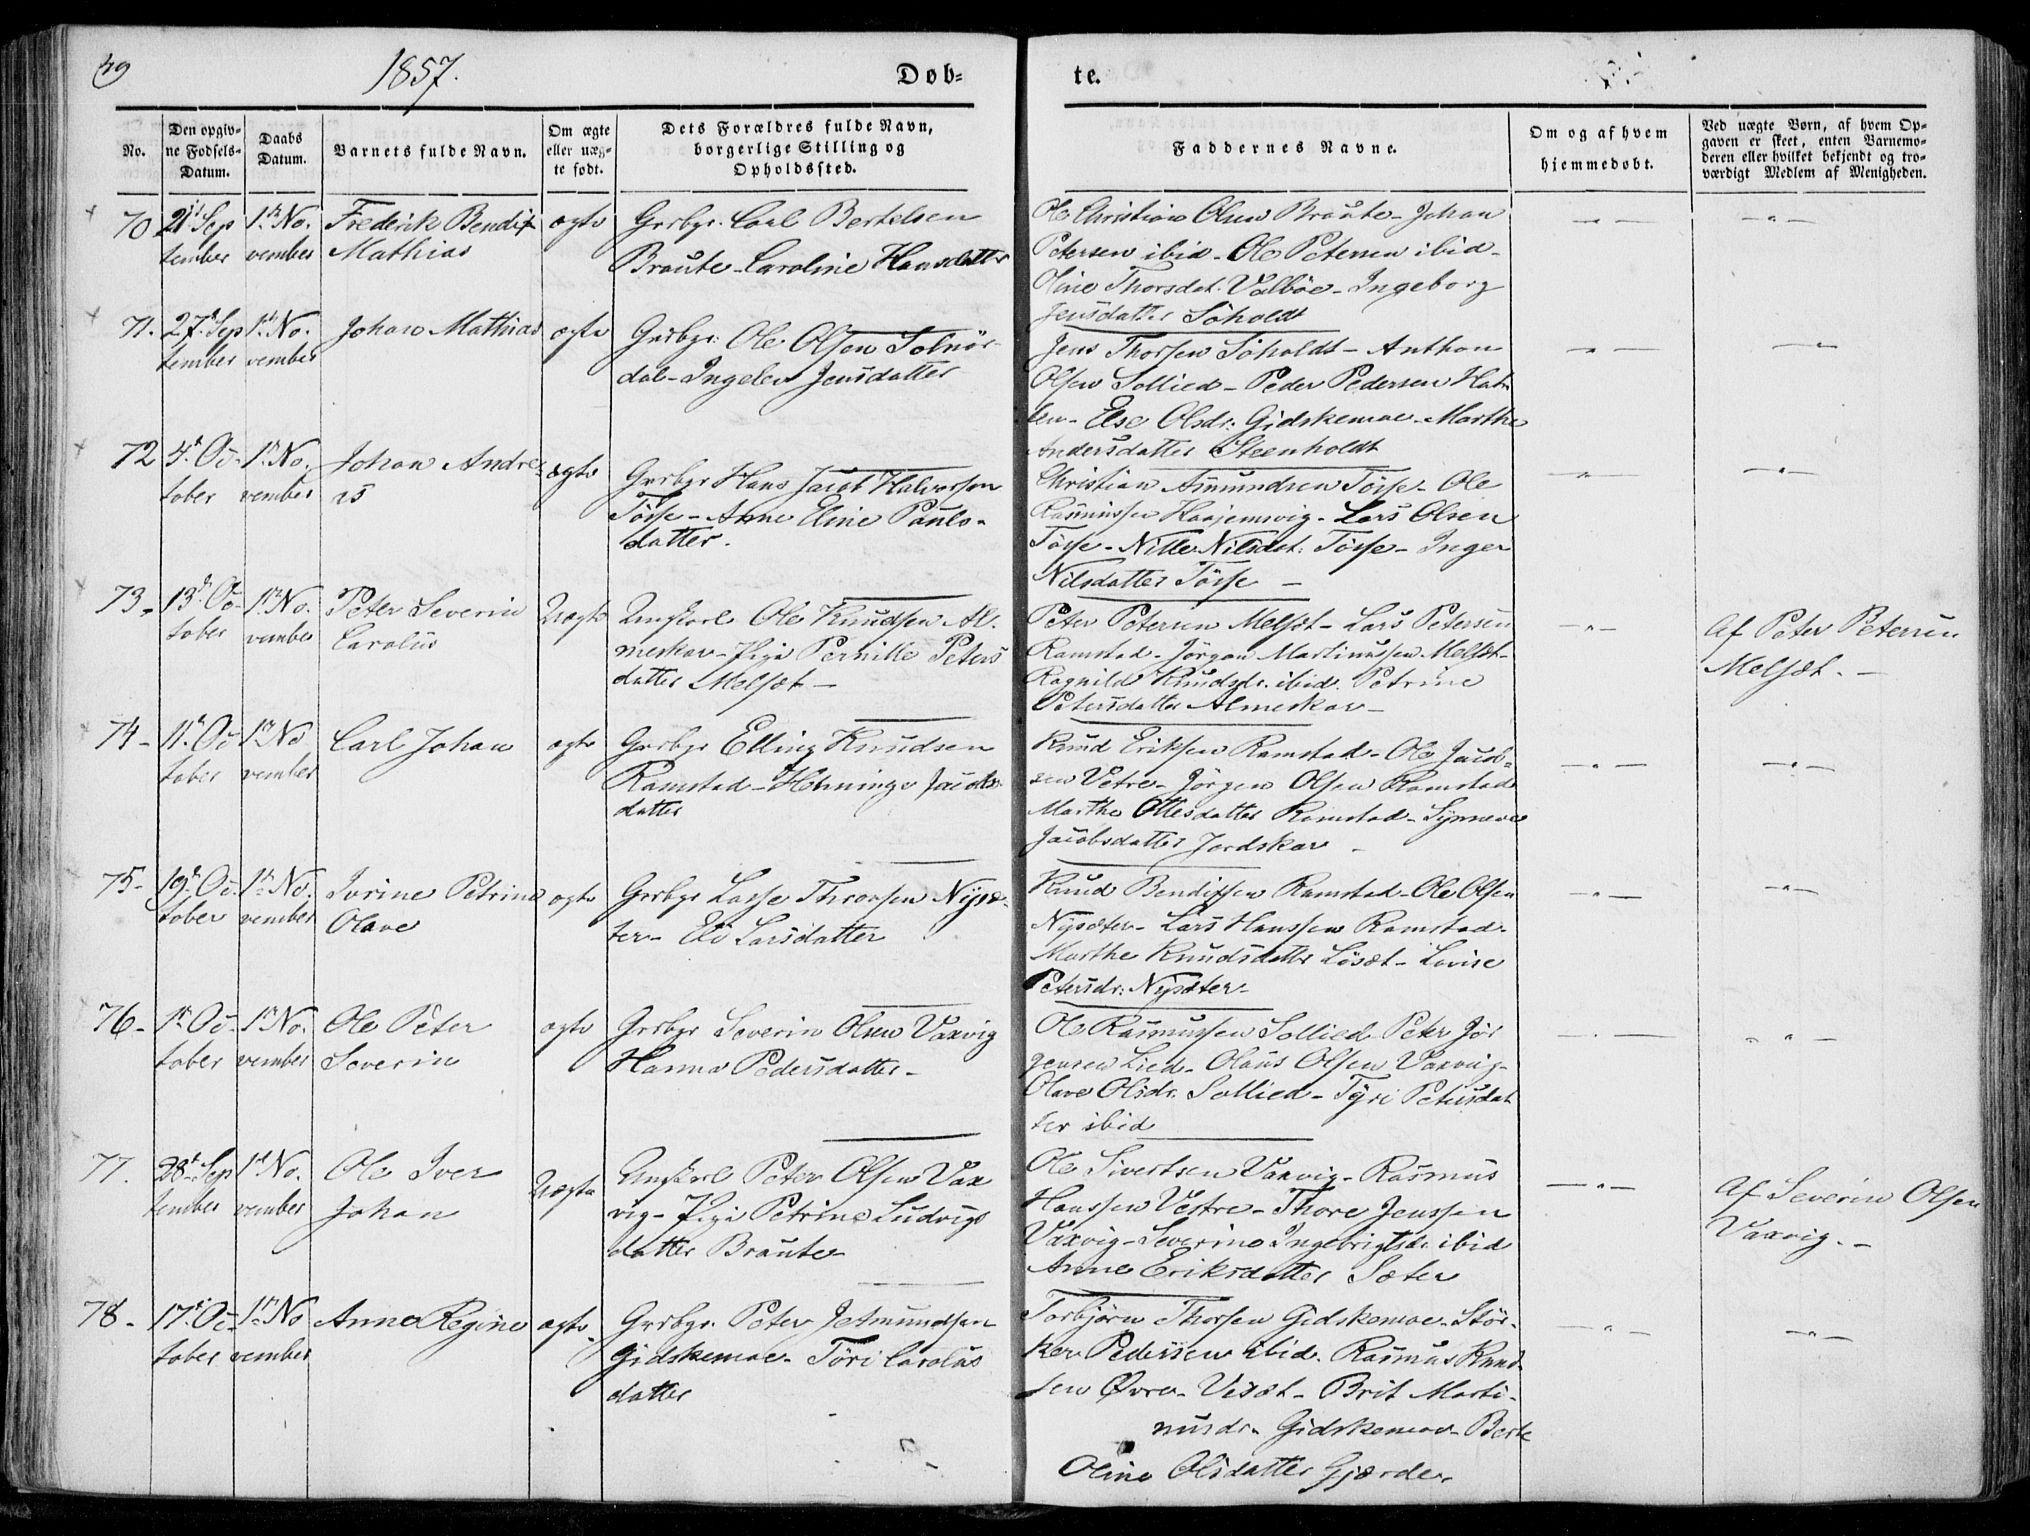 49
1857.
Døb=
te.
No.
Den opgiv=
ne Fødsels=
Datum.
Daabs
Datum.
Barnets fulde Navn.
Om ægte
eller uæg=
te født.
Dets Forældres fulde Navn,
borgerlige Stilling og
Opholdssted.
Faddernes Navne.
Om og af hvem
hjemmedøbt.
Ved uægte Børn, af hvem Op=
gaven er skeet, enten Barnemo=
deren eller hvilket bekjendt og tro=
værdigt Medlem af Menigheden.
70 21 Sep 1ste No. Frederik Bendix ægte Grbgr. Carl Bertelsen
tember vember Mathias Braute - Caroline Hansdatter
Ole Christian Olsen Braute - Johan
Petersen ibid - Ole Petersen ibid -
Oline Thorsdat. Valbøe - Ingeborg
Jensdatter Søholdt
71. 27 Sep 1 No. Johan Mathias ægte Grbgr. Ole Olsen Solnør
tember vember dal - Ingelev Jensdatter
Jens Thorsen Søholdt - Anthon
Olsen Sollied - Peder Pedersen Hat
len - Else Olsdr. Gidskemoe - Marthe
Andersdatter Steenholdt
72 4 Oc 1 No. Johan Andre ægte Grbgr Hans Jacob Halvorsen
tober vember as Tøsse - Anne Eline Pauls-
datter.
Christian Amundsen Tøsse - Ole
Rasmussen Haajemsvig - Lars Olsen
Tøsse - Nille Nilsdat. Tøsse - Inger
Nilsdatter Tøsse -
73 - 13 Oc 1 No. Peter Severin Uægte Ungkarl Ole Knudsen Al-
tober vember Carolus meskar - Pige Pernille Peters
datter Melsæt -
Peter Petersen Melsæt - Lars Petersen
Ramstad - Jørgen Martinussen Melsæt -
Ragnild Knudsdr. ibid. Petrine
Petersdatter Almeskar -
Af Peter Petersen
Melsæt. -
74 - 11 Oc 1 No Carl Johan ægte Grbgr Elling Knudsen
tober vember Ramstad - Henninge Jacobs
datter
Knud Eriksen Ramstad - Ole Jacob-
sen Vetre - Jørgen Olsen Ramstad
Marthe Ottesdatter Ramstad - Synneve
Jacobsdatter Jordskar -
75 - 19 Oc 1 No. Ivrine Petrine ægte Grbgr Lasse Thoorsen Nysæ-
tober vember Olave ter - Eli Larsdatter
Knud Bendixsen Ramstad - Ole Olsen
Nysæter - Lars Hanssen Ramstad -
Marthe Knudsdatter Løsæt - Lovise
Petersdr: Nysæter -
76 - 1 Oc 1 No. Ole Peter ægte Grbgr Severin Olsen Vaxvig
tober vember Severin Hanna Pedersdatter -
Ole Rasmussen Sollied Peter Jør
gensen Lied - Olaus Olsen Vaxvig -
Olave Olsdr. Sollied - Tyri Petersdat
ter ibid
77. 28 Sep 1 No. Ole Iver Uægte Ungkarl Peter Olsen Vax
tember vember Johan vig - Pige Petrine Ludvigs
datter Braute
Ole Sivertsen Vaxvig - Rasmus
Hanssen Vestre - Thore Jenssen
Vaxvig - Severine Ingebrigtsdr ibid
Anne Eriksdatter Sæter
Af Severin Olsen
Vaxvig. -
78 - 17 Oc 1 No Anne Regine ægte Grbgr. Peter Jetmundsen
tober vember Gidskemoe - Tøri Carolus
datter
Torbjørn Thorsen Gidskemoe - Stør-
ker Pederssen ibid. Rasmus Knud-
sen Øvre - Viset - Brit Marti-
nusdr - Gidskemoe - Berte
Oline Olsdatter Gjærde.